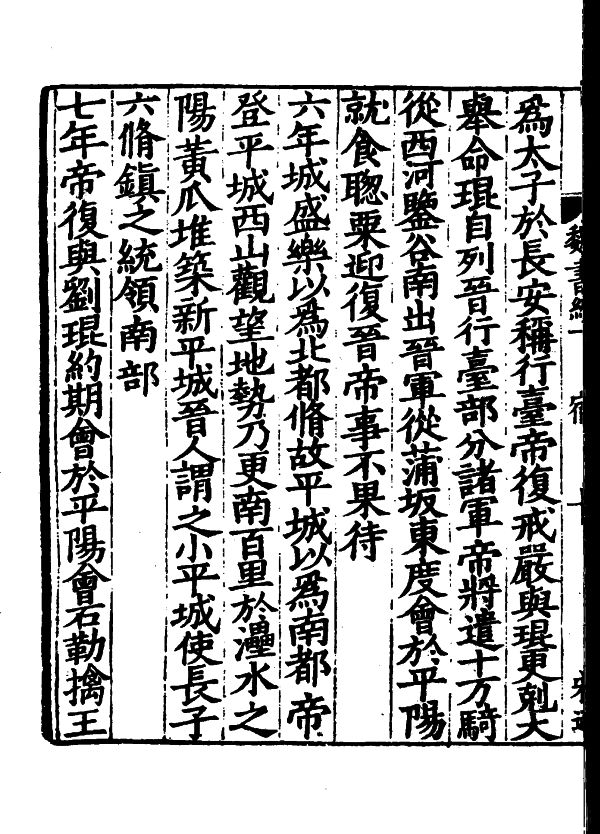 爲太子於長安稱行臺帝復戒嚴與琨更剋大
舉命琨自列晉行臺部分諸軍帝將遣十万騎
從西河鑒谷南出晉軍從蒲坂東度會於平陽
就食聦粟迎復晉帝事不果待
六年城盛樂以爲北都脩故平城以爲南都帝
登平城西山觀望地勢乃更南百里於灅水之
陽黃瓜堆築新平城晉人謂之小平城使長子
六脩鎮之統領南部
七年帝復與劉琨約期會於平陽會石勒擒王